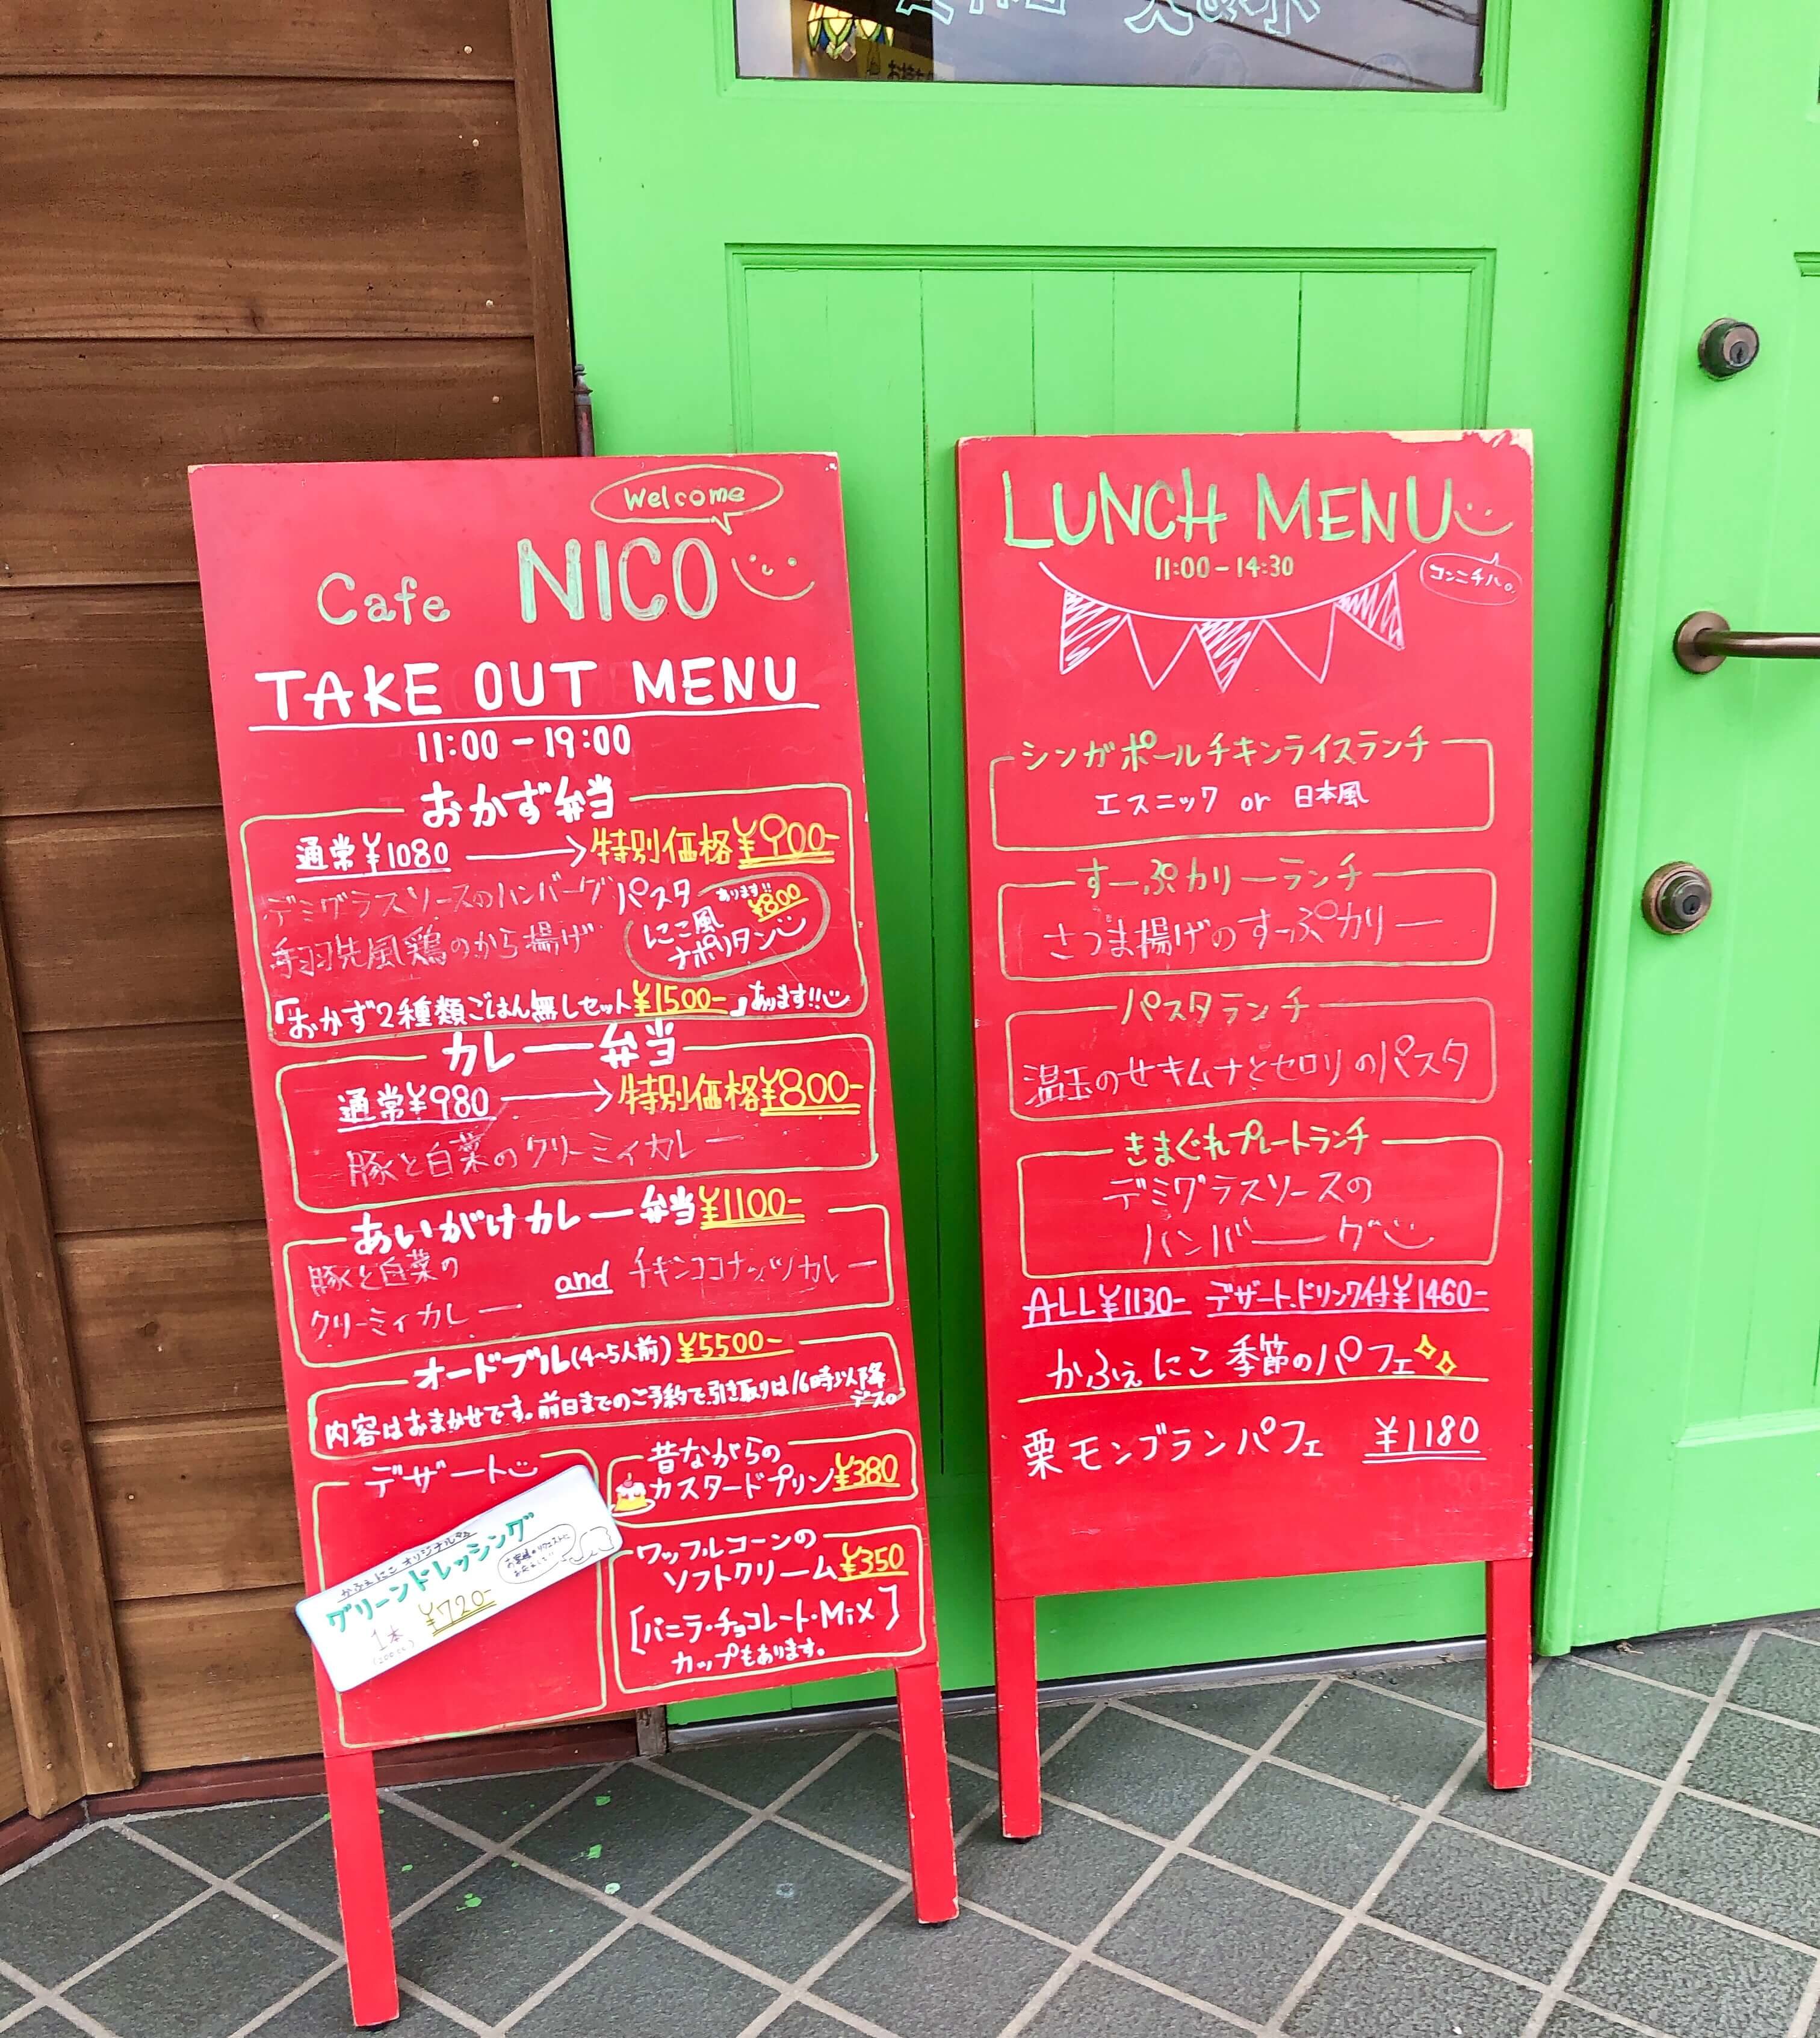 Welcome
Cafe NICO
TAKE OUT MENU
11:00-19:00
おかず弁当
通常¥1080 → 特別価格¥900-
デミグラスソースのハンバーグ
手羽先風鶏のから揚げ
パスタあります!!
にこ風
ナポリタン
¥800
「おかず2種類ごはん無しセット¥1500-」あります!!
カレー弁当
通常¥980 → 特別価格¥800-
豚と白菜のクリーミィカレー
あいがけカレー弁当¥1100-
豚と白菜の
クリーミィカレー
and チキンココナッツカレー
オードブル(4~5人前)¥5500-
内容はおまかせです。前日までのご予約で引き取りは16時以降
デス。
デザート
かふぇにこオリジナル
グリーンドレッシング
1本 ¥720-
昔ながらの
カスタードプリン¥380
ワッフルコーンの
ソフトクリーム¥350
[バニラ・チョコレート・MiX]
カップもあります。
LUNCH MENU
11:00-14:30
コンニチハ。
シンガポールチキンライスランチ
エスニック or 日本風
すーぷカリーランチ
さつま揚げのすーぷカリー
パスタランチ
温玉のせキムチとセロリのパスタ
きまぐれプレートランチ
デミグラスソースの
ハンバーグ
ALL¥1130- デザート、ドリンク付¥1460-
かふぇにこ季節のパフェ
栗モンブランパフェ ¥1180